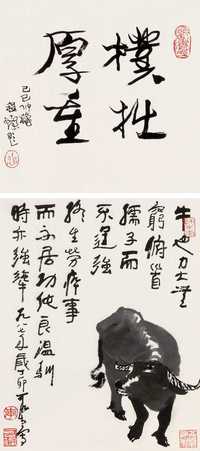 樸拙
厚重
己巳仲秋
牛也力大無
窮俯首
孺子而
不逞強
終生勞瘁事
而不居功純良溫馴
時亦強犟 一九八七年歲丁卯可染寫